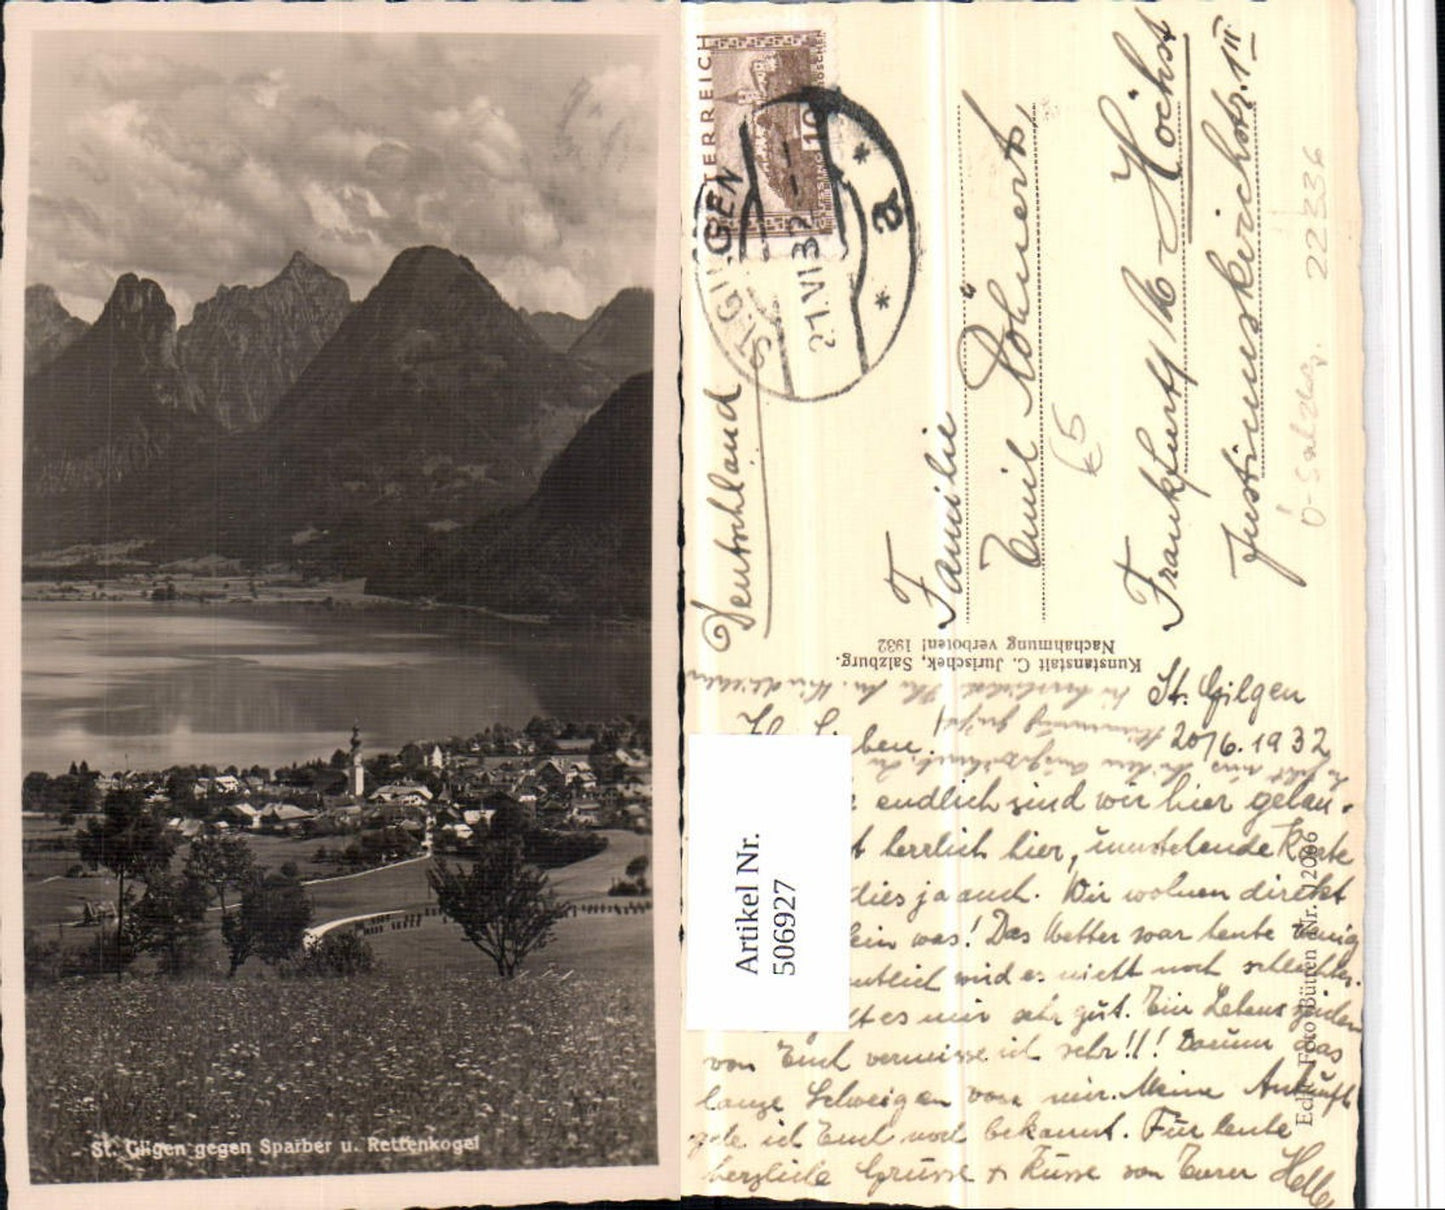 St. Gilgen gegen Sparber u. Rettenkogel
ÖSTERREICH
10
GROSCHEN
ST. GILGEN
21.VI.32
* a *
Deutschland
Familie
Emil Röhnert,
Frankfurt/M-Höchst
Justinuskirchstr. 1III
€5
Ö-Salzbg. 22336
Kunstanstalt C. Jurischek, Salzburg.
Nachahmung verboten! 1932
St. Gilgen
20/6.1932
Lieben.
endlich sind wir hier gelan-
herrlich hier, umstehende Karte
dies ja auch. Wir wohnen direkt
fein was! Das Wetter war heute wenig
wird es nicht noch schlechter.
es mir sehr gut. Ein Lebens
von Euch vermisse ich sehr!!! Darum das
lange Schweigen von mir. Meine Ankunft
gebe ich Euch noch bekannt. Für heute
herzliche Grüsse + Küsse von Eurer Helle
Echte Foto Bütten Nr. 12006
Artikel Nr.
506927